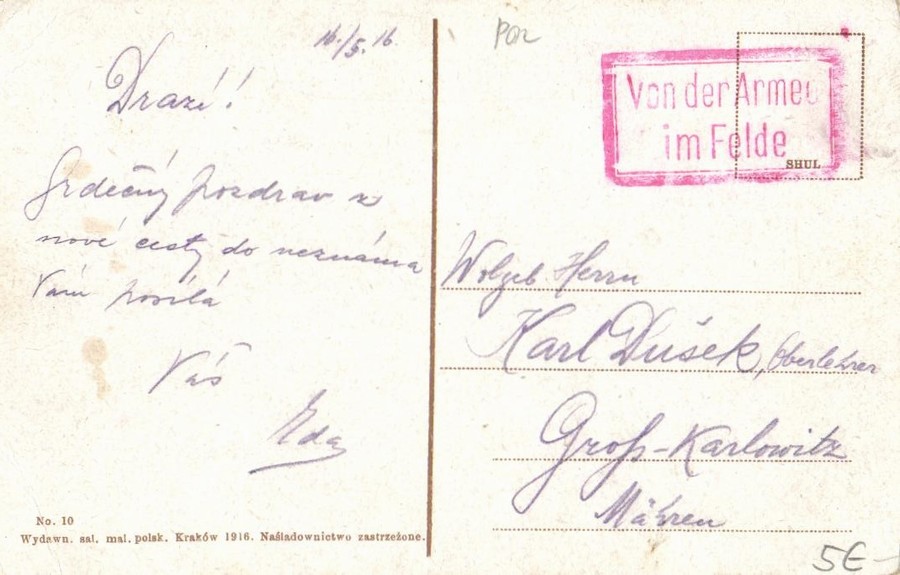 16./5. 16.
Drazí!
Srdečný pozdrav z
nové cesty do neznáma
Vám posílá
Váš
Eda
No. 10
Wydawn. sal. mal. polsk. Kraków 1916. Naśladownictwo zastrzeżone.
POR
Von der Armee
im Felde
SHUL
Wolgeb Herrn
Karl Dušek, Oberlehrer
Groß-Karlowitz
Mähren
5€-